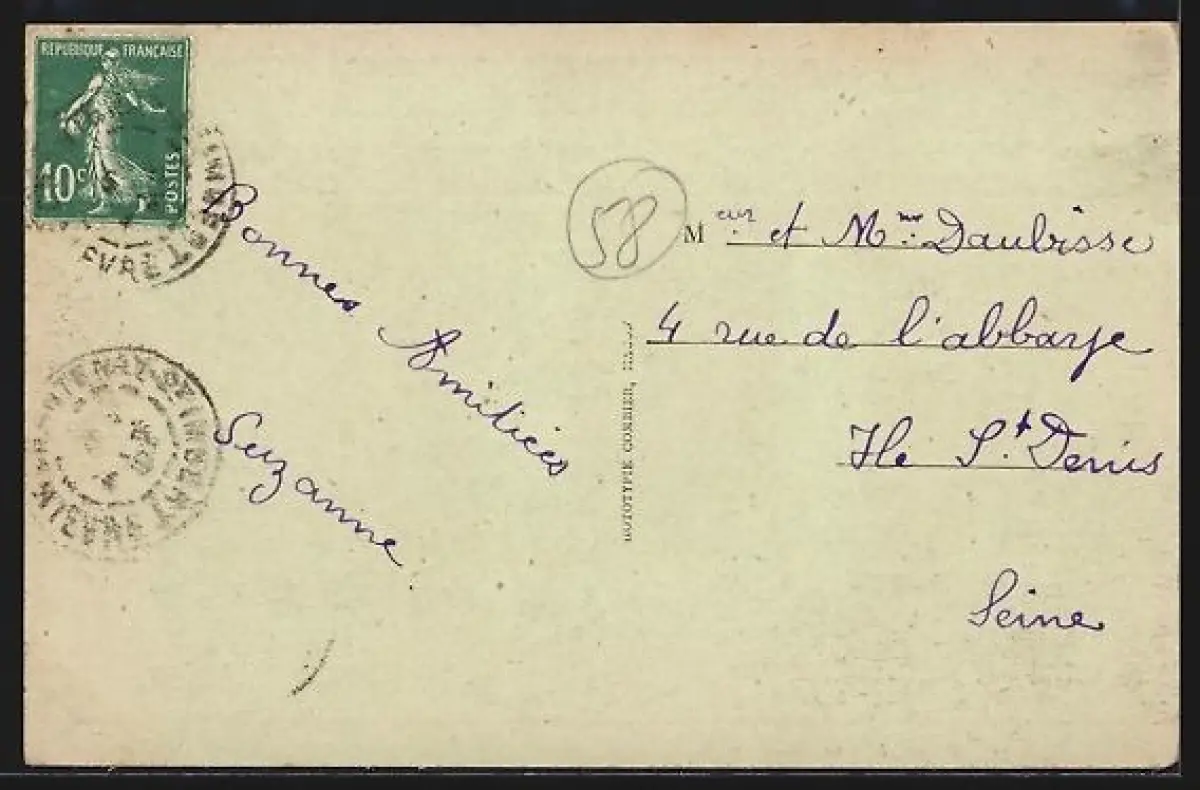 RÉPUBLIQUE FRANÇAISE
10c
POSTES
Bonnes Amitiés
Suzanne
58
Meur et Mme Daubisse
4 rue de l'abbaye
Ile St. Denis
Seine
COMBIER,
NIEVRE